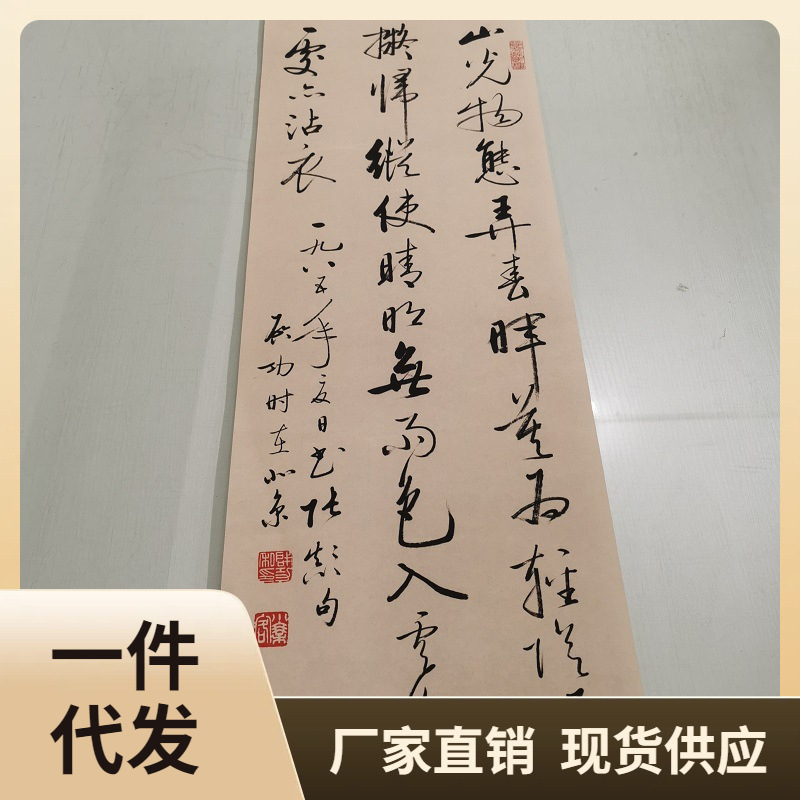 山光物態弄春暉莫为輕陰
擬歸縱使晴明無雨色入雲
處亦沾衣
一九八五年夏日书张颠句
启功时在北京
一件
代发
厂家直销 现货供应